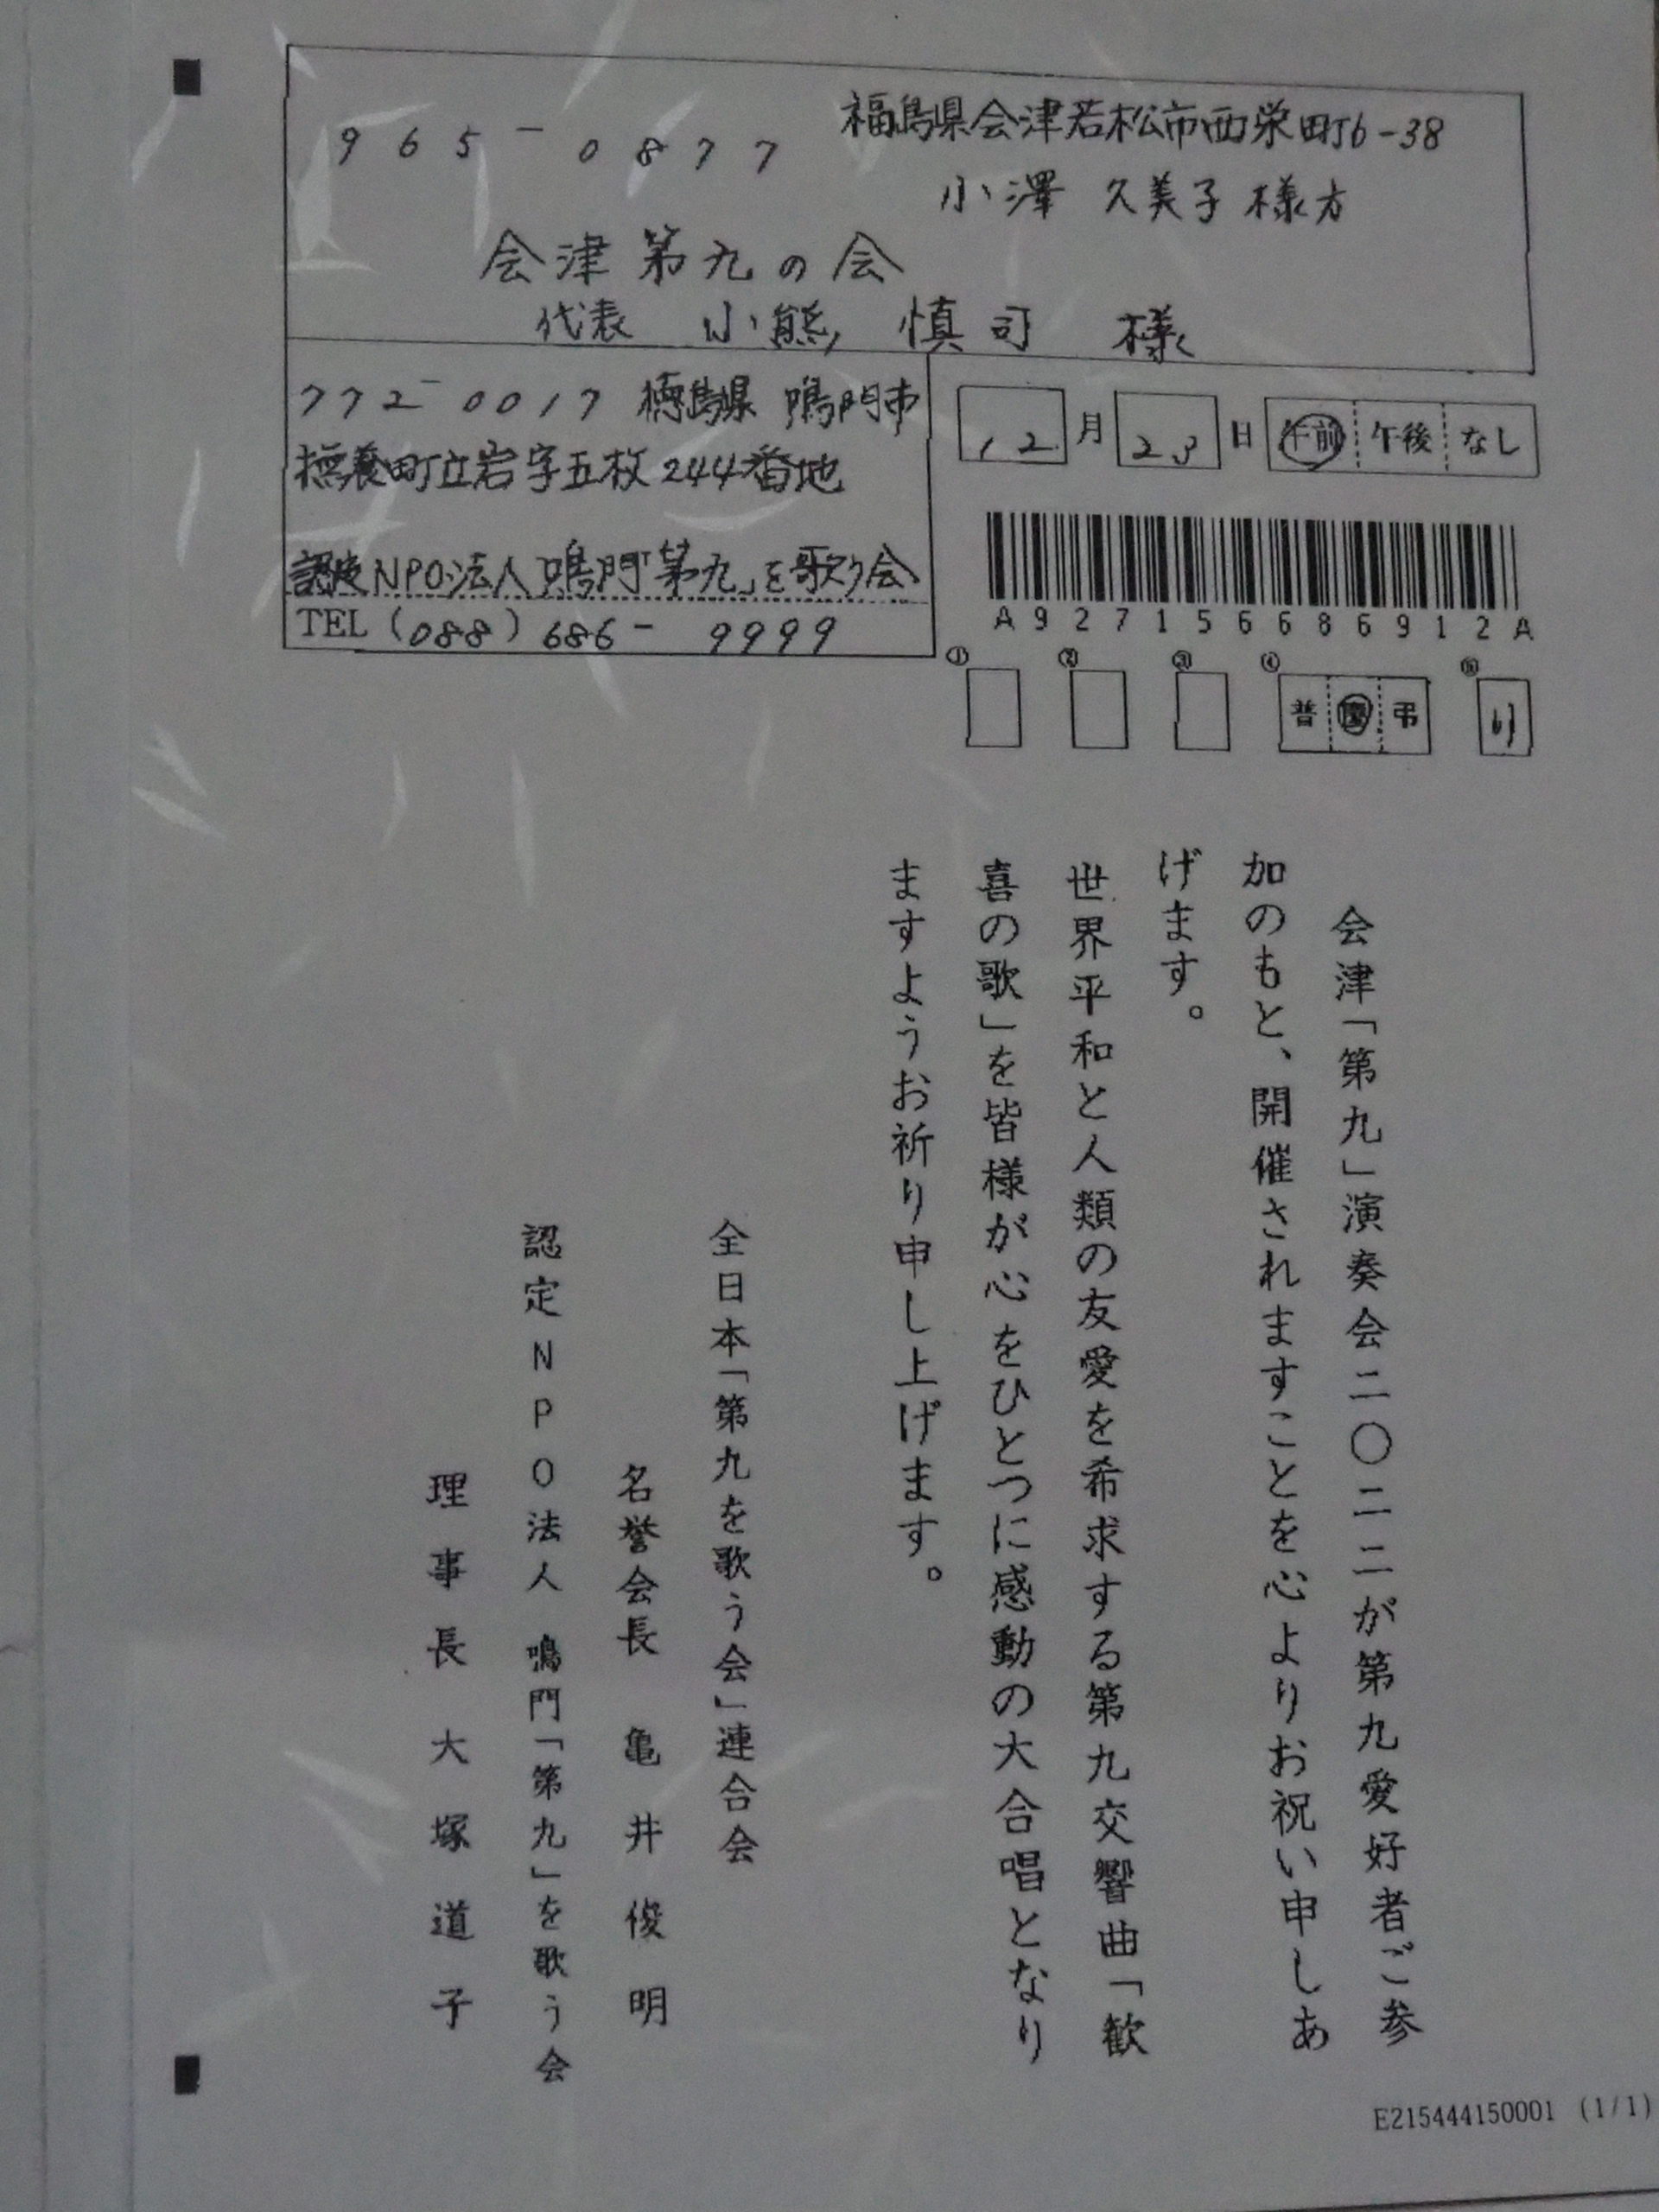 965-0877
福島県会津若松市西栄町6-38
小澤 久美子 様方
会津第九の会
代表 小熊 慎司 様
772-0017 徳島県 鳴門市
撫養町立岩字五枚244番地
認定NPO法人鳴門「第九」を歌う会
TEL (088) 686-9999
12月23日 午前 午後 なし
A927156668691 2A
① ② ③ ④ ⑤
普 慶 弔
会津「第九」演奏会二〇二二が第九愛好者ご参
加のもと、開催されますことを心よりお祝い申しあ
げます。
世界平和と人類の友愛を希求する第九交響曲「歓
喜の歌」を皆様が心をひとつに感動の大合唱となり
ますようお祈り申し上げます。
全日本「第九を歌う会」連合会
名誉会長 亀井俊明
認定NPO法人 鳴門「第九」を歌う会
理事長 大塚道子
E215444150001 (1/1)